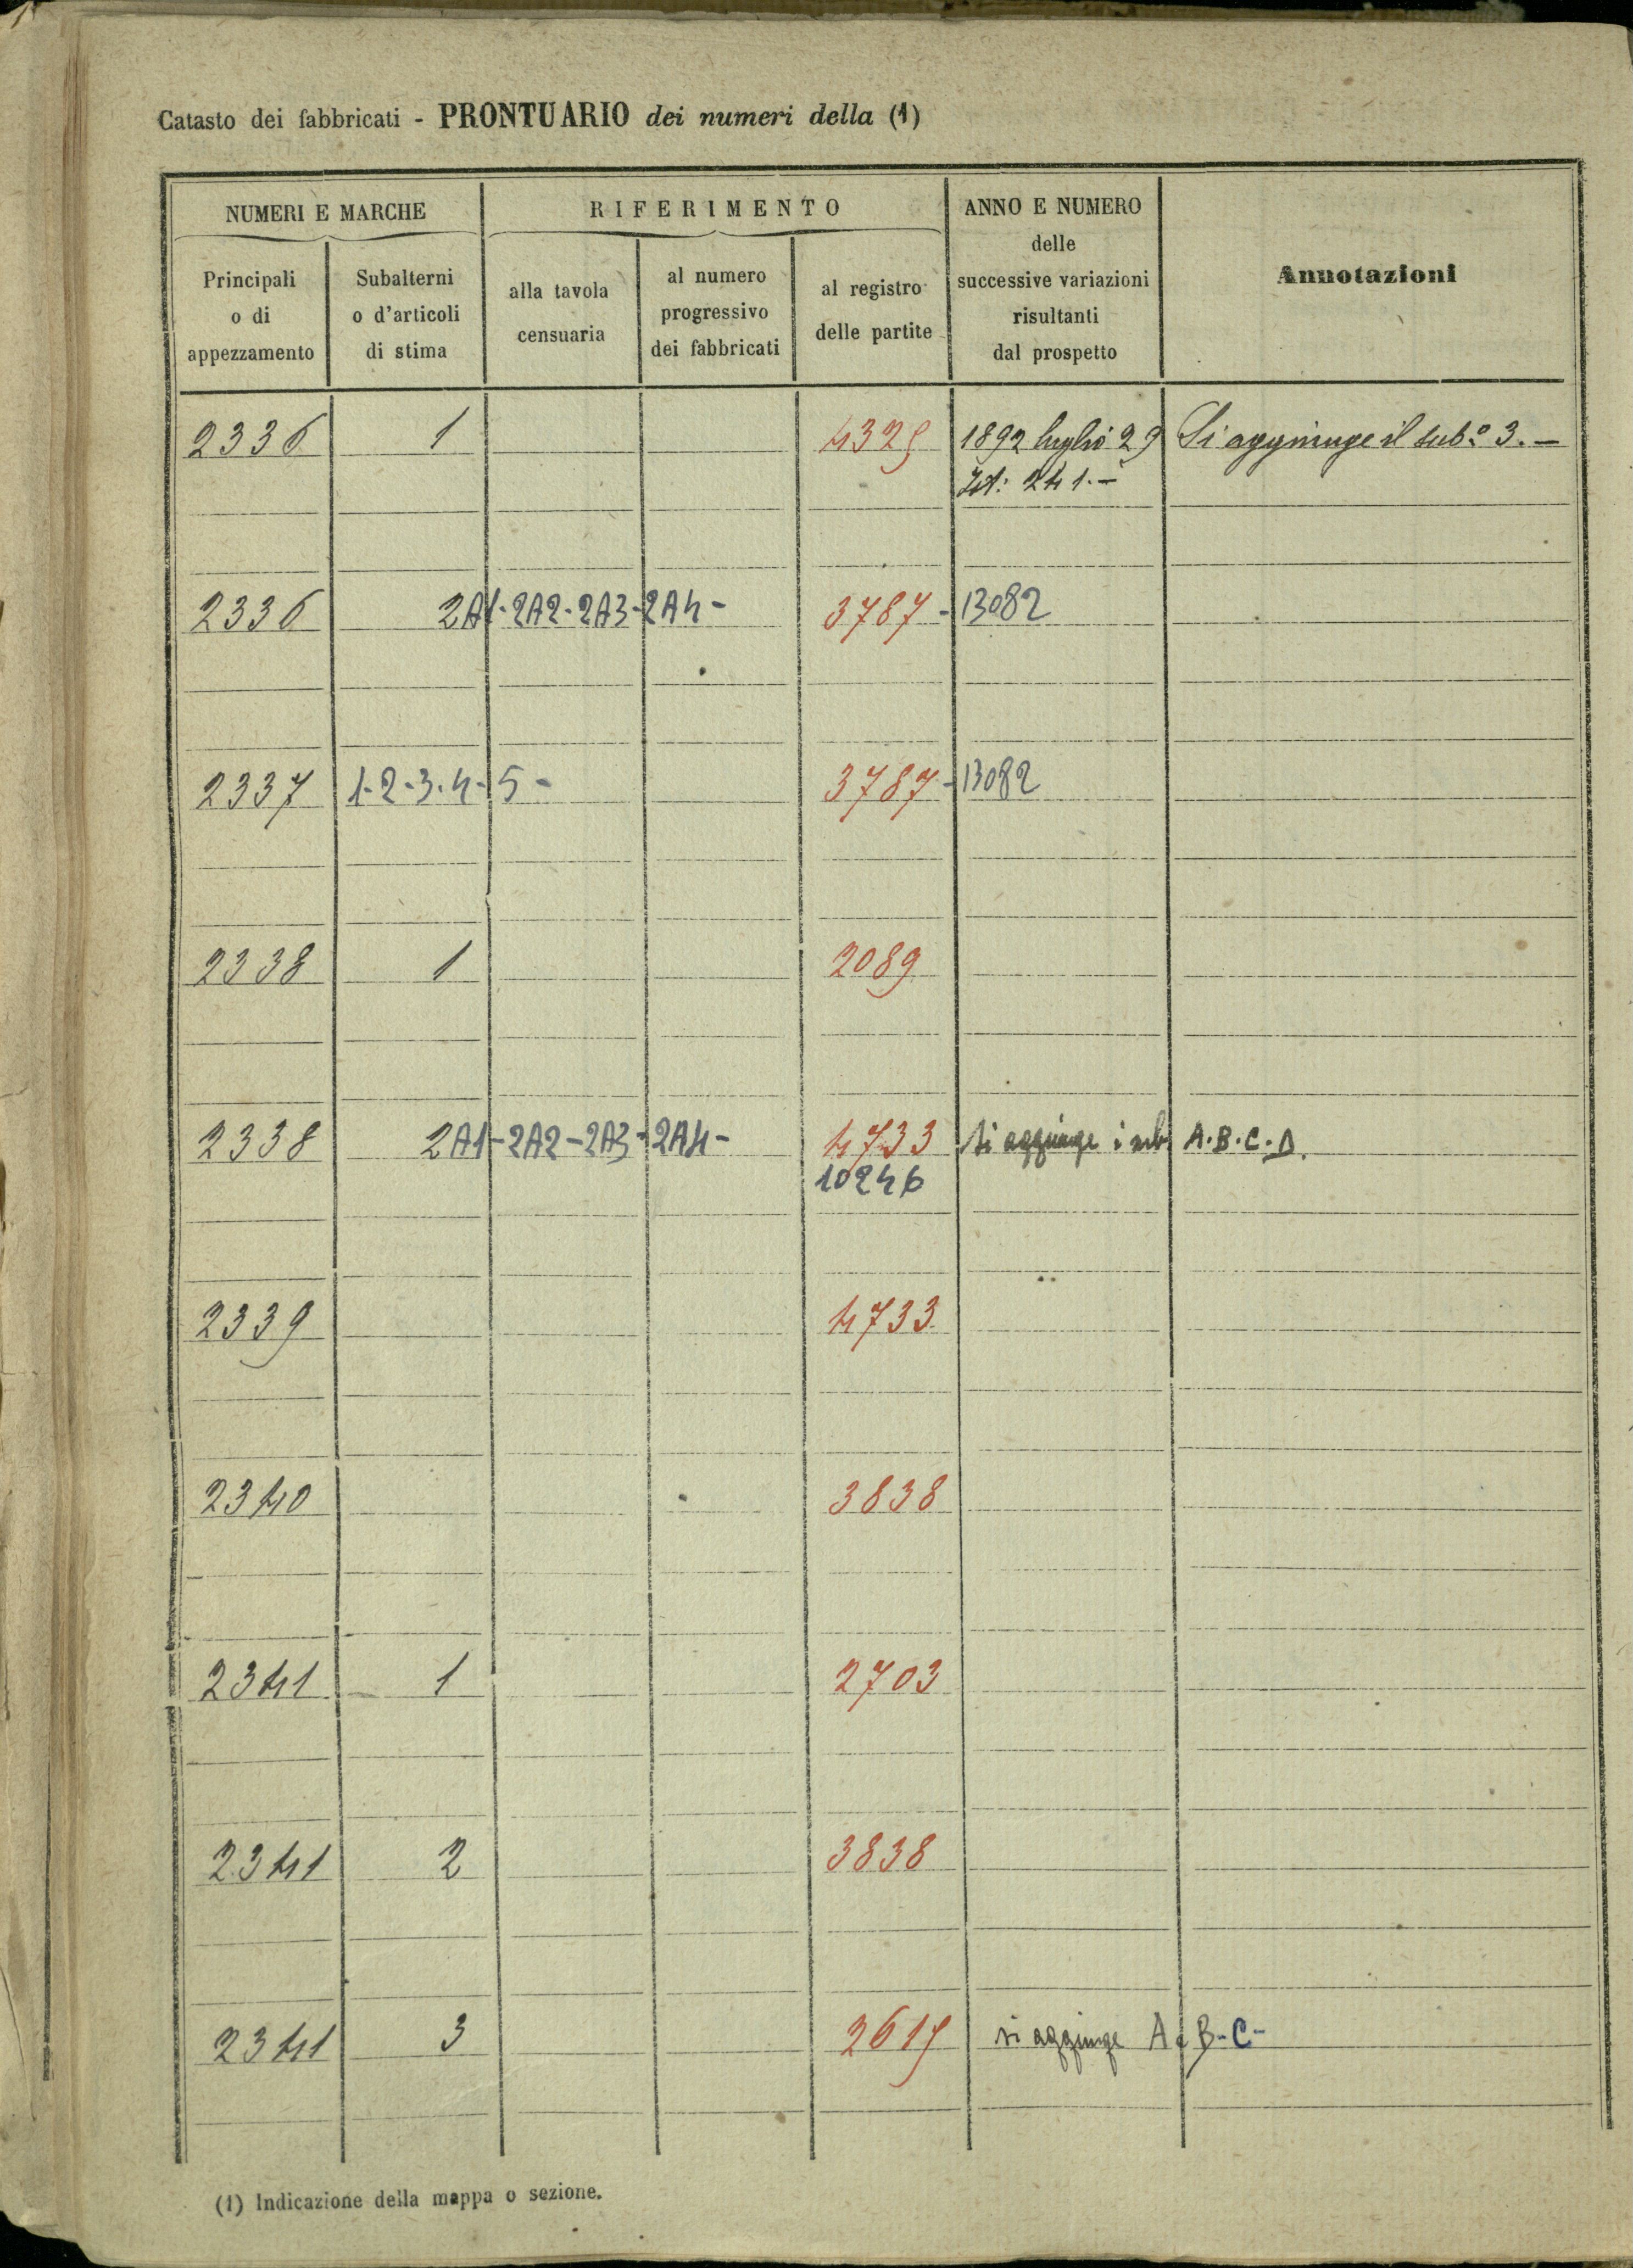 Catasto dei fabbricati - PRONTUARIO dei numeri della (1)
NUMERI E MARCHE
RIFERIMENTO
ANNO E NUMERO
delle
successive variazioni
risultanti
dal prospetto
Annotazioni
Principali
o di
appezzamento
Subalterni
o d'articoli
di stima
alla tavola
censuaria
al numero
progressivo
dei fabbricati
al registro
delle partite
2336 1 4325 1892 luglio 29 Si aggiunge il sub.° 3.-
241.-
2336 2A1-2A2-2A3-2A4- 3787- 13082
2337 1-2-3-4-5- 3787- 13082
2338 1 2089
2338 2A1-2A2-2A3-2A4- 4733 si aggiunge i sub. A.B.C.D.
10246
2339 4733
2340 3838
2341 1 2703
2341 2 3838
2341 3 2615 si aggiunge A e B-C-
(1) Indicazione della mappa o sezione.